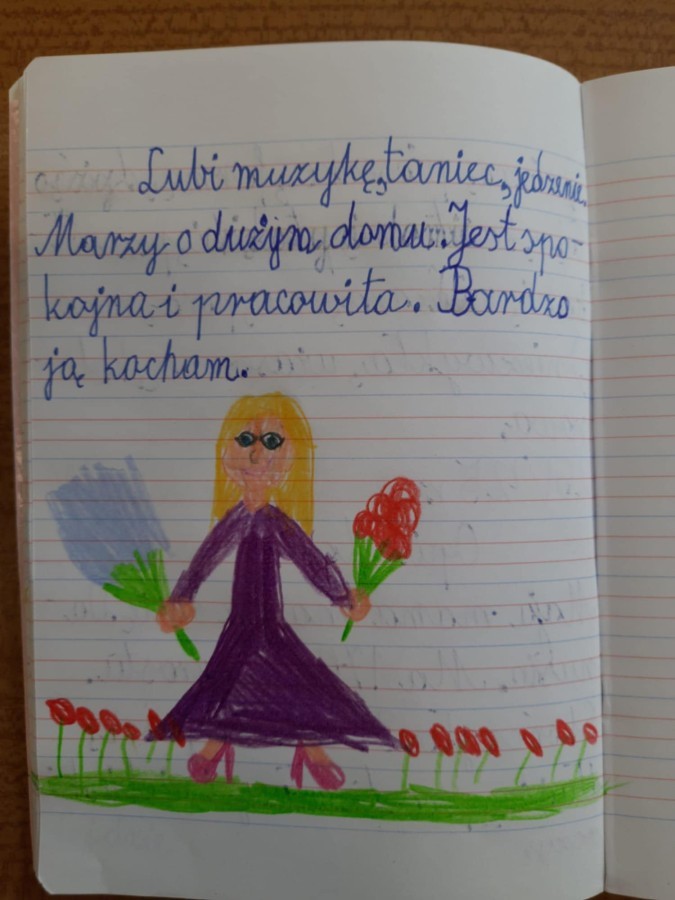 Lubi muzykę, taniec, jedzenie.
Marzy o dużym domu. Jest spo-
kojna i pracowita. Bardzo
ją kocham.